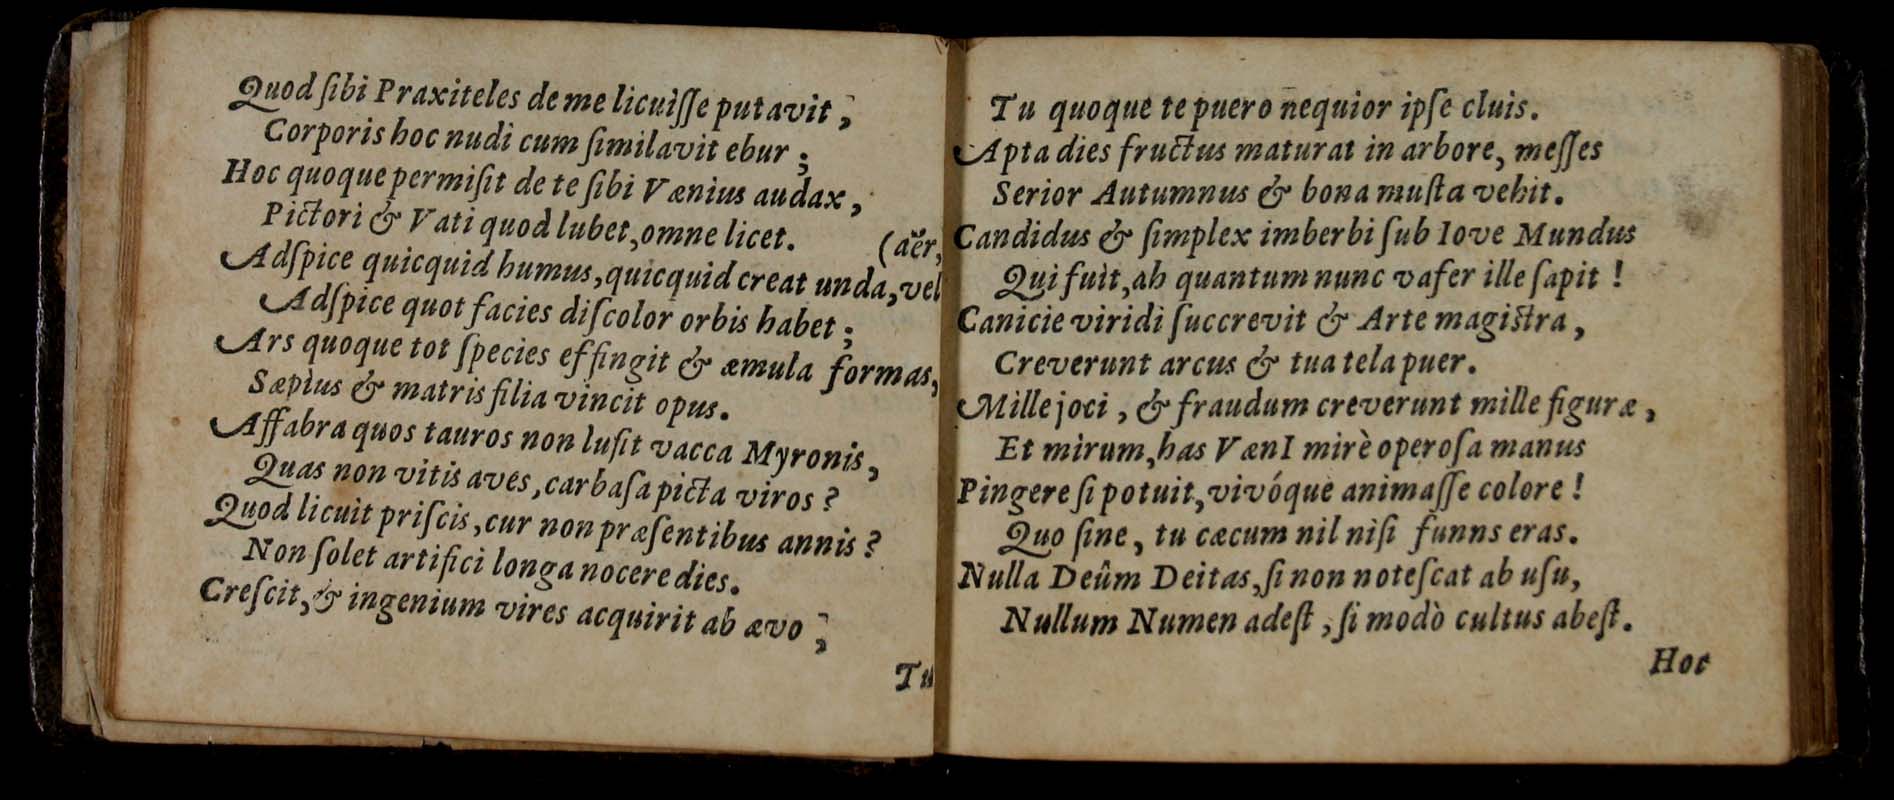 Quod ſibi Praxiteles de me licuiſſe putavit,
Corporis hoc nudi cum ſimilavit ebur;
Hoc quoque permiſit de te ſibi Vænius audax,
Pictori & Vati quod lubet, omne licet.
(aër,
Adſpice quicquid humus, quicquid creat unda, vel
Adſpice quot facies diſcolor orbis habet;
Ars quoque tot ſpecies effingit & æmula formas,
Sæpius & matris filia vincit opus.
Affabra quos tauros non luſit vacca Myronis,
Quas non vitis aves, carbaſa picta viros?
Quod licuit priſcis, cur non præſentibus annis?
Non ſolet artifici longa nocere dies.
Creſcit, & ingenium vires acquirit ab ævo;
Tu
Tu quoque te puero nequior ipſe cluis.
Apta dies fructus maturat in arbore, meſſes
Serior Autumnus & bona muſta vehit.
Candidus & ſimplex imberbi ſub Iove Mundus
Qui fuit, ah quantum nunc vafer ille ſapit!
Canicie viridi ſuccrevit & Arte magiſtra,
Creverunt arcus & tua tela puer.
Mille joci, & fraudum creverunt mille figuræ,
Et mirum, has VænI mirè operoſa manus
Pingere ſi potuit, vivóque animaſſe colore!
Quo ſine, tu cæcum nil niſi funns eras.
Nulla Deûm Deitas, ſi non noteſcat ab uſu,
Nullum Numen adeſt, ſi modò cultus abeſt.
Hoc